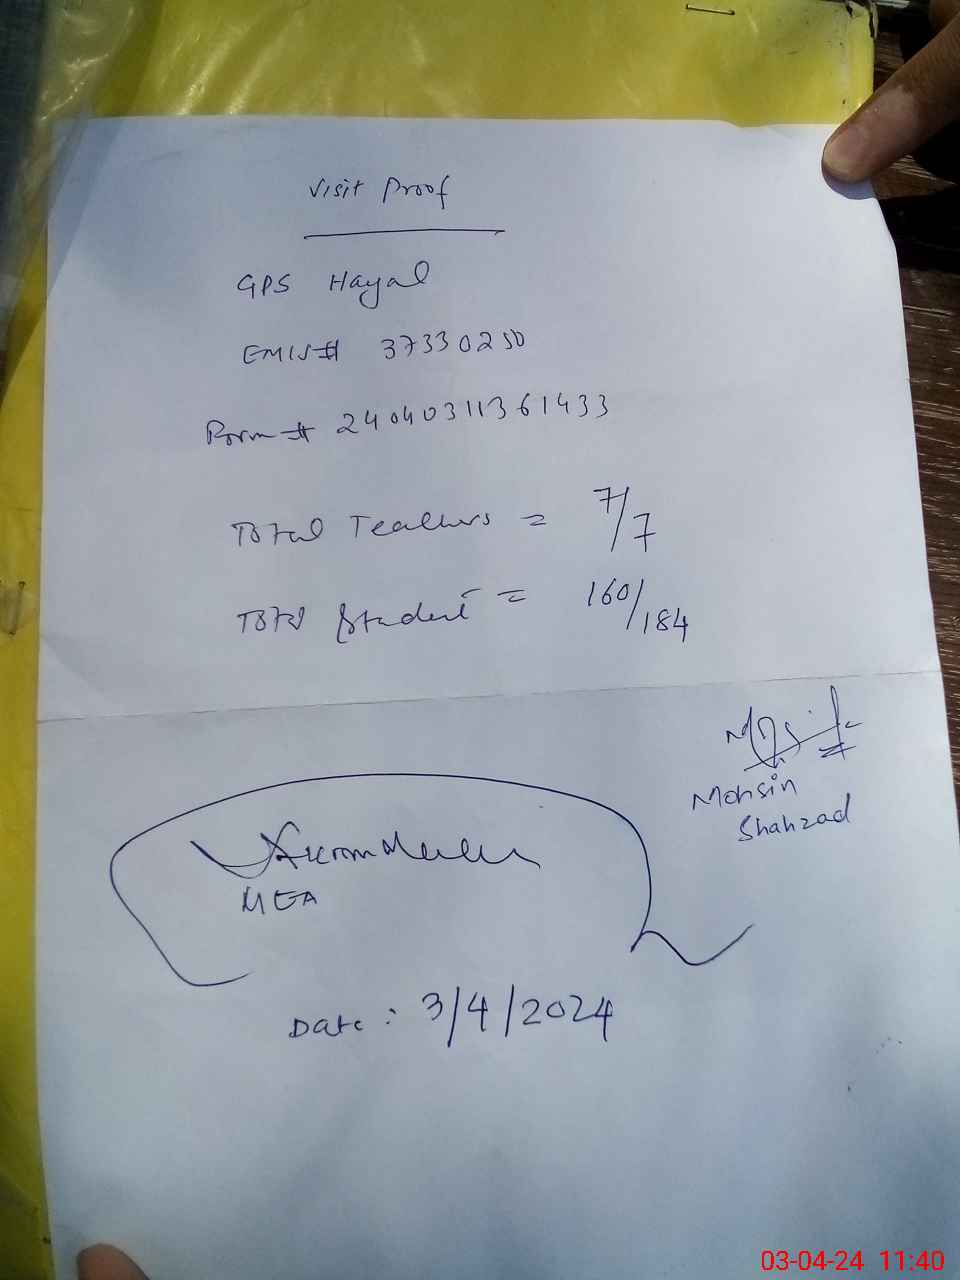 Visit Proof
GPS Hayal
EMIS# 37330250
Form # 24040311361433
Total Teachers = 7/7
Total Student = 160/184
Mohsin
Shahzad
MEA
Date : 3/4/2024
03-04-24 11:40